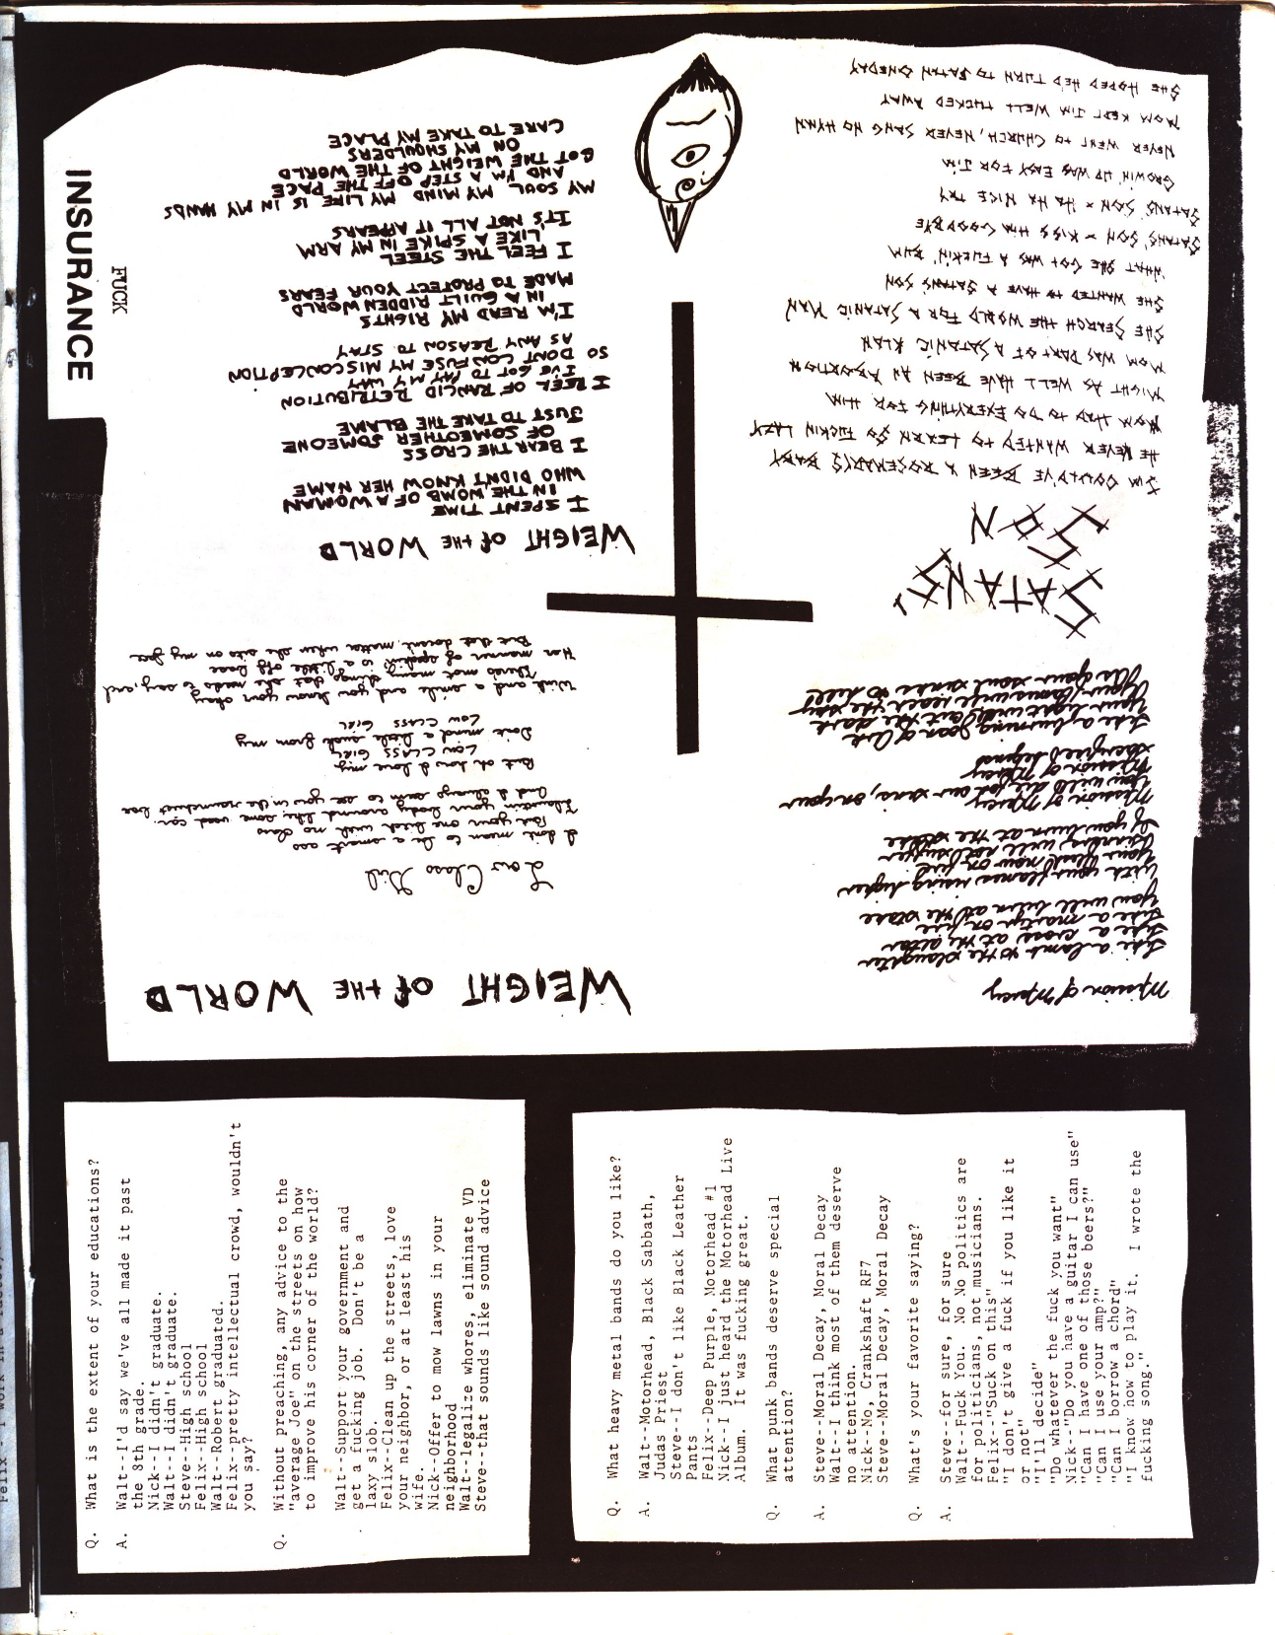 INSURANCE
FUCK
WEIGHT OF THE WORLD
Low Class Girl
I don't mean to be a smart ass
But your one bitch with no class
Flauntin your body around like some used car
And I always seem to see you in the raunchiest bar
But oh how I love my
LOW CLASS GIRL
Don't mind a little suck from my
LOW CLASS GIRL
With and a smile and you know your okay
There's not many things that she needs to say, and
Her manner of speakin is a little off base
But that doesn't matter when she sits on my face
WEIGHT OF THE WORLD
I SPENT TIME
IN THE WOMB OF A WOMAN
WHO DIDN'T KNOW HER NAME
I BEAR THE CROSS
OF SOMEOTHER SOMEONE
JUST TO TAKE THE BLAME
I REEL OF RANCID RETRIBUTION
I'VE GOT TO PAY MY WAY
SO DONT CONFUSE MY MISCONCEPTION
AS ANY REASON TO STAY
I'M READ MY RIGHTS
IN A GUILT RIDDEN WORLD
MADE TO PROTECT YOUR FEARS
I FEEL THE STEEL
LIKE A SPIKE IN MY ARM
IT'S NOT ALL IT APPEARS
MY SOUL MY MIND MY LIFE IS IN MY HANDS
AND I'M A STEP OFF THE PACE
GOT THE WEIGHT OF THE WORLD
ON MY SHOULDERS
CARE TO TAKE MY PLACE
Mission of Mercy
Like a lamb to the slaughter
Like a cross at the altar
Like a martyr on fire
You will burn at the stake
With your flames rising higher
Your flesh now on fire
will not suffer
If you burn at the stake
Mission of Mercy
You will die for our sins, on your
Mission of Mercy
Sacrificed legend
Like a burning Joan of Ark
Your light will out the dark
Your screams will reach the sky
As your soul sinks to hell
SATANS'
SON
JIM COULD'VE BEEN A ROSEMARYS BABY
HE NEVER WANTED TO LEARN SO FUCKIN LAZY
MOM HAD TO DO EVERYTHING FOR HIM
MIGHT AS WELL HAVE BEEN AN ABORTION
MOM WAS PART OF A SATANIC KLAN
SHE SEARCH THE WORLD FOR A SATANIC MAN
SHE WANTED TO HAVE A SATANS SON
WHAT SHE GOT WAS A FUCKIN' BUM
SATANS' SON × KISS HIM GOODBYE
SATANS' SON × HA HA NICE TRY
GROWIN' UP WAS EASY FOR JIM
NEVER WENT TO CHURCH, NEVER SANG NO HYMN
MOM KEPT JIM WELL TUCKED AWAY
SHE HOPED HE'D TURN TO SATAN ONEDAY
Q. What is the extent of your educations?
A. Walt--I'd say we've all made it past
the 8th grade.
Nick--I didn't graduate.
Walt--I didn't graduate.
Steve--High school
Felix--High school
Walt--Robert graduated.
Felix--pretty intellectual crowd, wouldn't
you say?
Q. Without preaching, any advice to the
"average Joe" on the streets on how
to improve his corner of the world?
Walt--Support your government and
get a fucking job. Don't be a
laxy slob.
Felix--Clean up the streets, love
your neighbor, or at least his
wife.
Nick--Offer to mow lawns in your
neighborhood
Walt--legalize whores, eliminate VD
Steve--that sounds like sound advice
Q. What heavy metal bands do you like?
A. Walt--Motorhead, Black Sabbath,
Judas Priest
Steve--I don't like Black Leather
Pants
Felix--Deep Purple, Motorhead #1
Nick--I just heard the Motorhead Live
Album. It was fucking great.
Q. What punk bands deserve special
attention?
A. Steve--Moral Decay, Moral Decay
Walt--I think most of them deserve
no attention.
Nick--No, Crankshaft,RF7
Steve--Moral Decay, Moral Decay
Q. What's your favorite saying?
A. Steve--for sure, for sure
Walt--Fuck You. No No politics are
for politicians, not musicians.
Felix--"Suck on this"
"I don't give a fuck if you like it
or not"
"I'll decide"
"Do whatever the fuck you want"
Nick--"Do you have a guitar I can use"
"Can I have one of those beers?"
"Can I use your amp?"
"Can I borrow a chord"
"I know how to play it. I wrote the
fucking song."